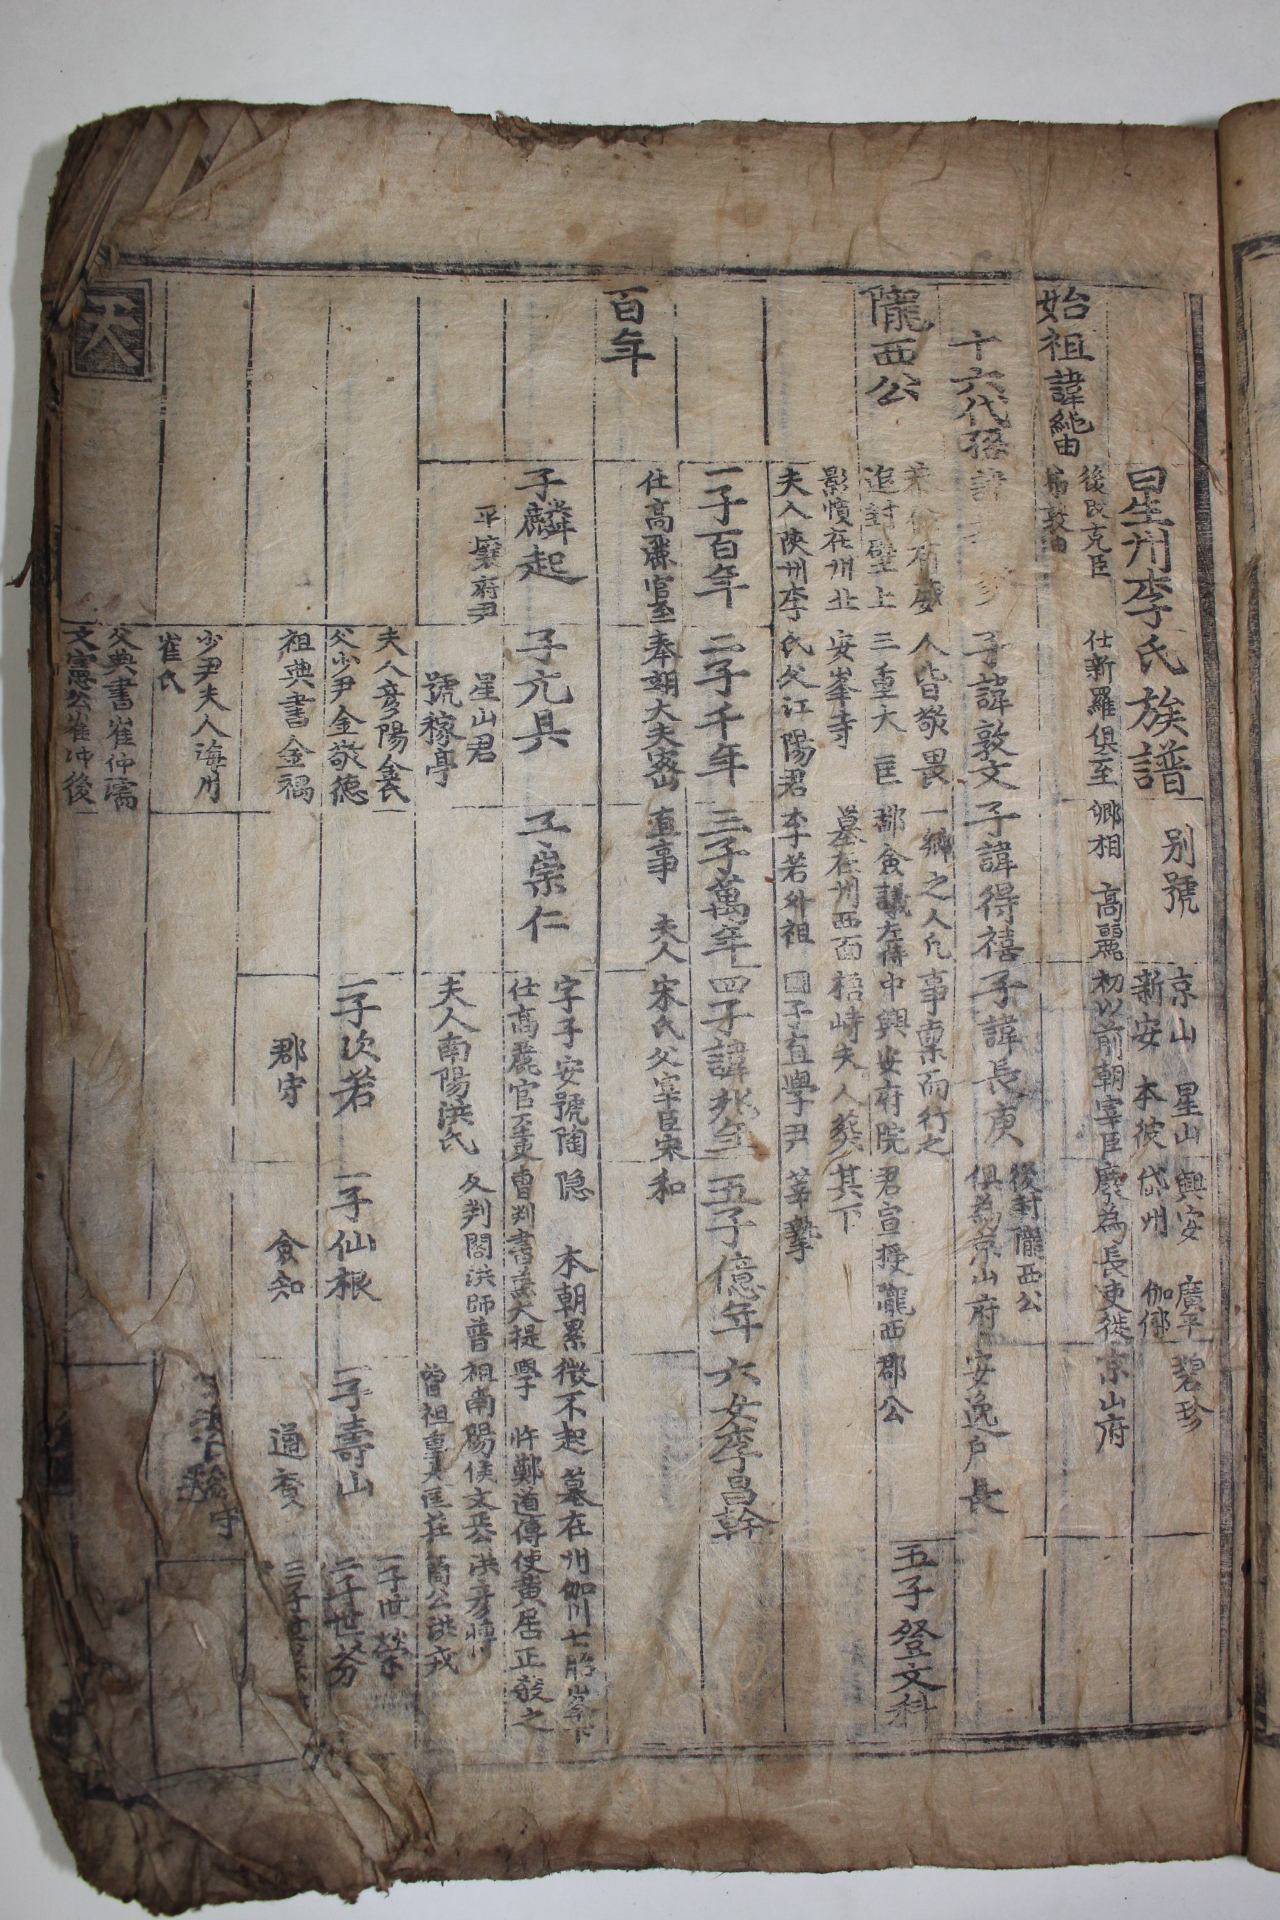 星州李氏族譜
別號
京山 星山 興安 廣平 碧珍
新安 本彼 岱州 伽倻
始祖諱純由
後改克臣
弟敦由
仕新羅俱至 卿相 高麗初以前朝宰臣廢為長吏徙京山府
十六代孫諱
子諱敦文 子諱得禧 子諱長庚
後封隴西公
俱為京山府安逸戶長
人皆敬畏一鄉之人凡事稟而行之
隴西公
追封壁上三重大匡 都僉議左侍中興安府院君宣授隴西郡公
五子登文科
影幀在州北安峯寺 墓在州西面梧峙夫人葬其下
夫人陜州李氏父江陽君李若外祖國子直學尹莘摯
一子百年 二子千年 三子萬年 四子諱兆年 五子億年 六女李昌幹
百年
仕高麗官至奉朝大夫密直事 夫人宋氏父宰臣宋和
子麟起
平壤府尹
子元具
星山君
號稼亭
子崇仁
字子安號陶隱 本朝累徵不起 墓在州伽川七胎峯下
仕高麗官至吏曹判書兼大提學 忤鄭道傳使黃居正殺之
夫人南陽洪氏
父判閤洪師普祖南陽侯文正公洪彦博
曾祖重大匡莊簡公洪戎
夫人彦陽金氏
父少尹金敬德
祖典書金禍
一子次若
郡守
一子仙根
僉知
一子壽山
通贊
一子世榮
二子世芬
少尹夫人海州
崔氏
父典書崔仲濡
文憲公崔冲後
天